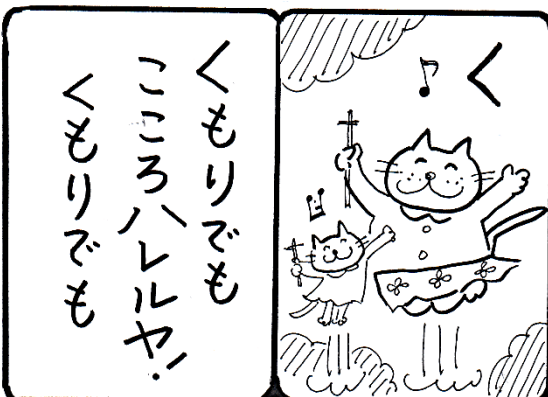 くもりでも
こころハレルヤ!
くもりでも
く